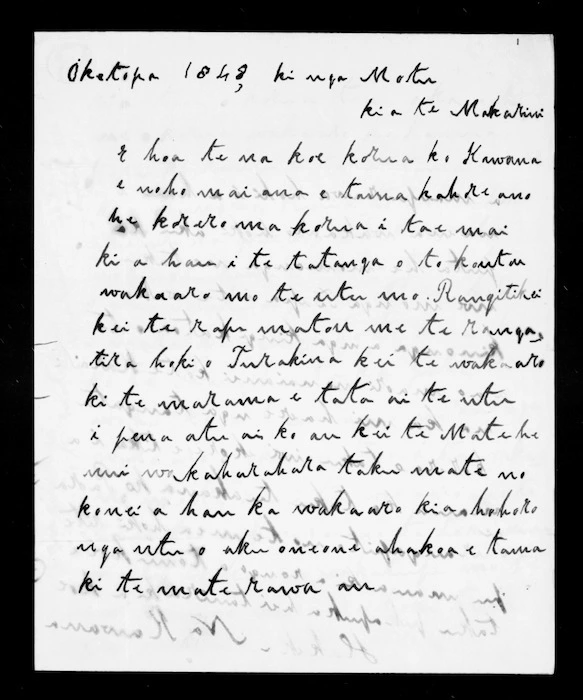 1
Oketopa 1848, ki nga Motu
kia te Makarini
E hoa te na koe korua ko Kawana
e noho mai ana e tama kahore ano
he korero ma korua i tae mai
ki a hau i te tatanga o to koutou
wakaaro mo te utu mo Rangitikei
kei te rapu matou me te ranga,
tira hoki o Turakina kei te wakaaro
ki te marama e tata ai te utu
i pena atu ai ko au kei te Mate he
nui wakaharahara taku mate no
konei a hau ka wakaaro kia hohoro
nga utu o aku oneone ahakoa e tama
ki te mate rawa au